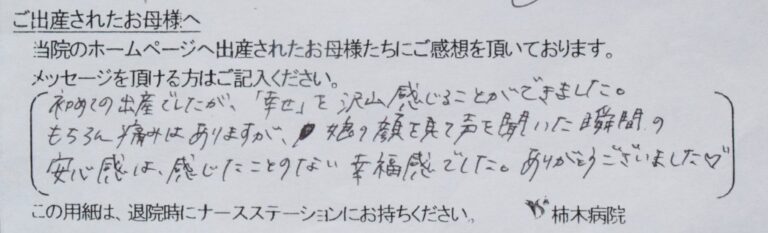 ご出産されたお母様へ
当院のホームページへ出産されたお母様たちにご感想を頂いております。
メッセージを頂ける方はご記入ください。
初めての出産でしたが、「幸せ」を沢山感じることができました。
もちろん痛みはありますが、娘の顔を見て声を聞いた瞬間の
安心感は、感じたことのない幸福感でした。ありがとうございました♡
この用紙は、退院時にナースステーションにお持ちください。 柿木病院